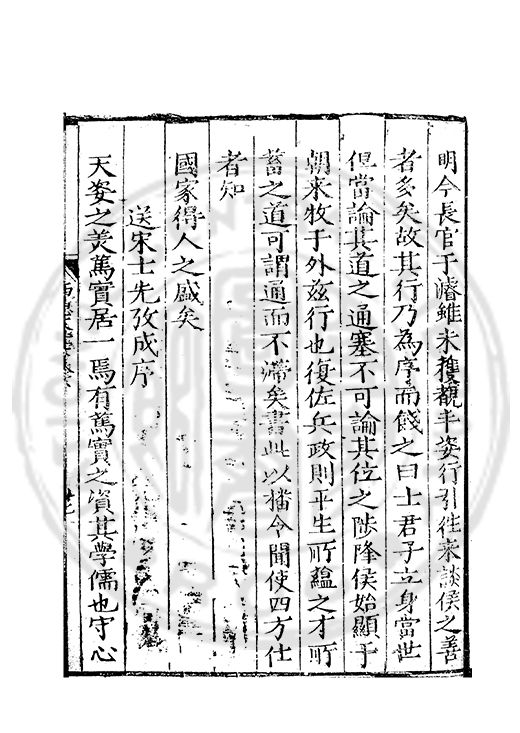 明令長官于濬雖未獲覩丰姿行引往來談侯之善
者多矣故其行乃為序而餞之曰士君子立身當世
但當論其道之通塞不可論其位之陟降侯始顯于
朝來牧于外兹行也復佐兵政則平生所蘊之才所
蓄之道可謂通而不滯矣書此以播令聞使四方仕
者知
國家得人之盛矣
送宋士先攷成序
天姿之美篤實居一焉有篤實之資其學儒也守心